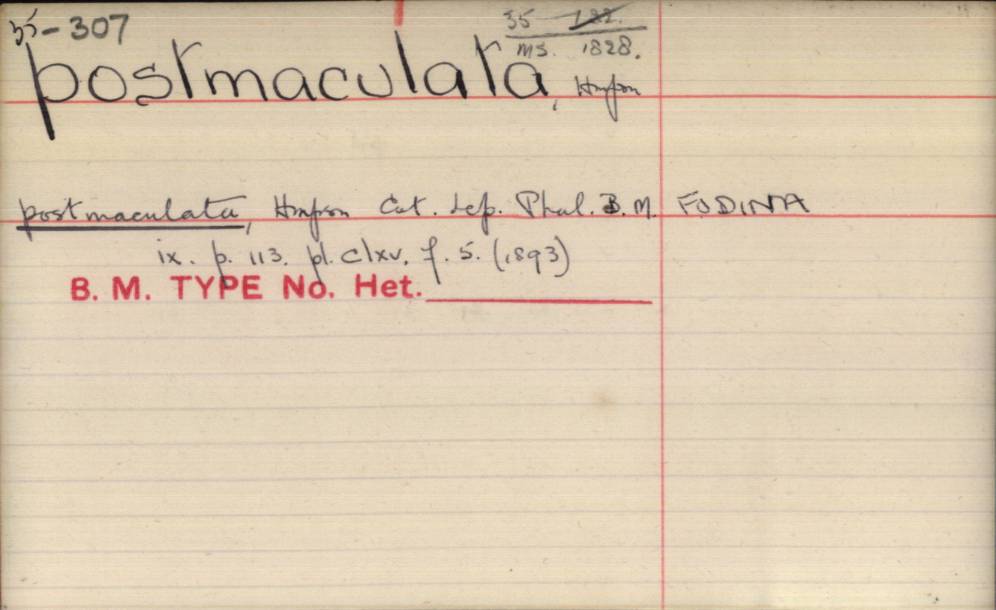 35-307
35 182.
ms. 1828.
postmaculata, Hmpsn
postmaculata, Hmpsn Cat. Lep. Phal. B.M. FODINA
ix. p. 113. pl. clxv. f. 5. (1893)
B. M. TYPE No. Het.